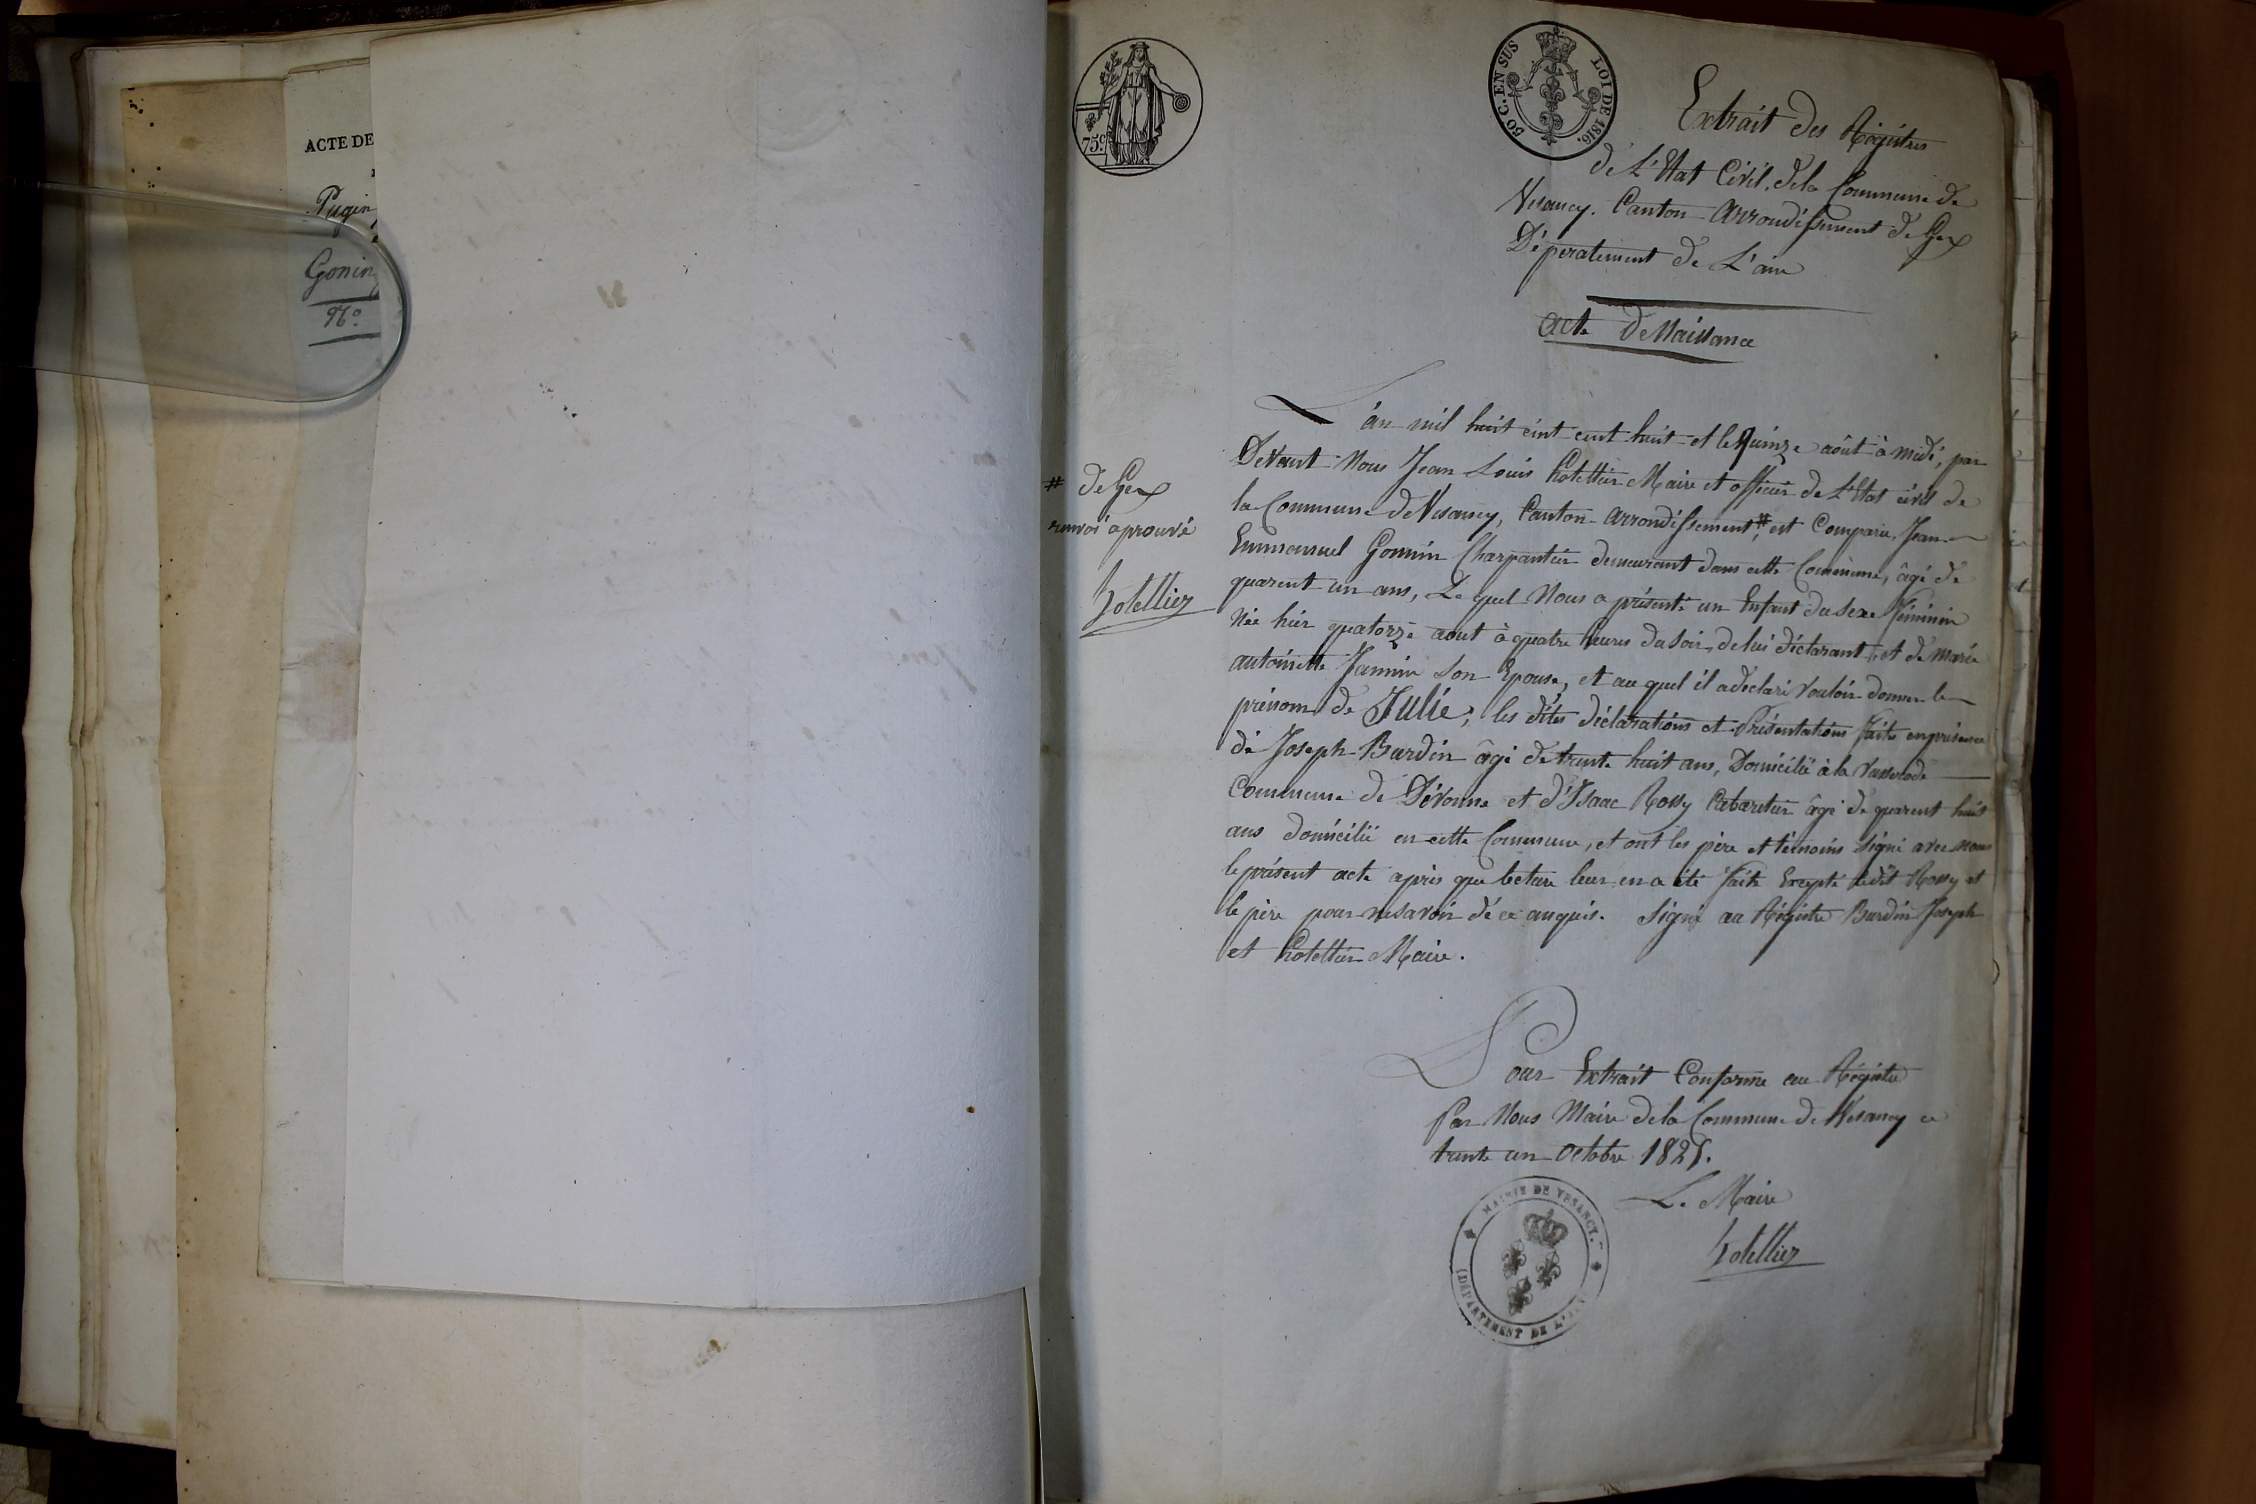 ACTE DE
Pugin
Gonin
No.
75c.
50 C. EN SUS LOI DE 1816.
Extrait des Régistres
de L'Etat Civil, de la Commune de
Vesancy. Canton arrondissement de Gex
Déperatement de L'ain
acte de Naissance
L'an mil huit cint cent huit et le Quinze août à midi, par
Devant Nous Jean Louis hotellier Maire et officier de L'Etat civil de
la Commune de Vesancy, Canton arrondissement # est Comparu Jean
Emmanuel Gonnin Charpantier demeurant dans cette Commune, âgé de
quarent un ans, Le quel Nous a présenté un Enfant du sexe Féminin
Née hier quatorze aout à quatre heures du soir, de lui déclarant, et de marie
antoinette Jannin son Epouse, et au quel il a declaré vouloir donner le
prénom de Julie; les dites déclarations et Présentations faite en présence
de Joseph Bardin âgé de trente huit ans, Domicilié à la
Commune de Dévonne et d'Isaac Rossy Cabaretier âgé de quarent huit
ans domicilié en cette Commune, et ont les père et témoins signé avec nous
le présent acte après que lecture leur en a été faite Excepté ledit Rossy et
le père pour ne savoir de ce anquis. Signé au Régistre Bardin Joseph
et hotellier Maire.
# de Gex
renvoi aprouvé
hotellier
Pour Extrait Conforme au Régistre
Par Nous Maire de la Commune de Vesancy ce
trente un octobre 1825.
Le Maire
hotellier
MAIRIE DE VESANCY.
(DÉPARTEMENT DE L'AIN)